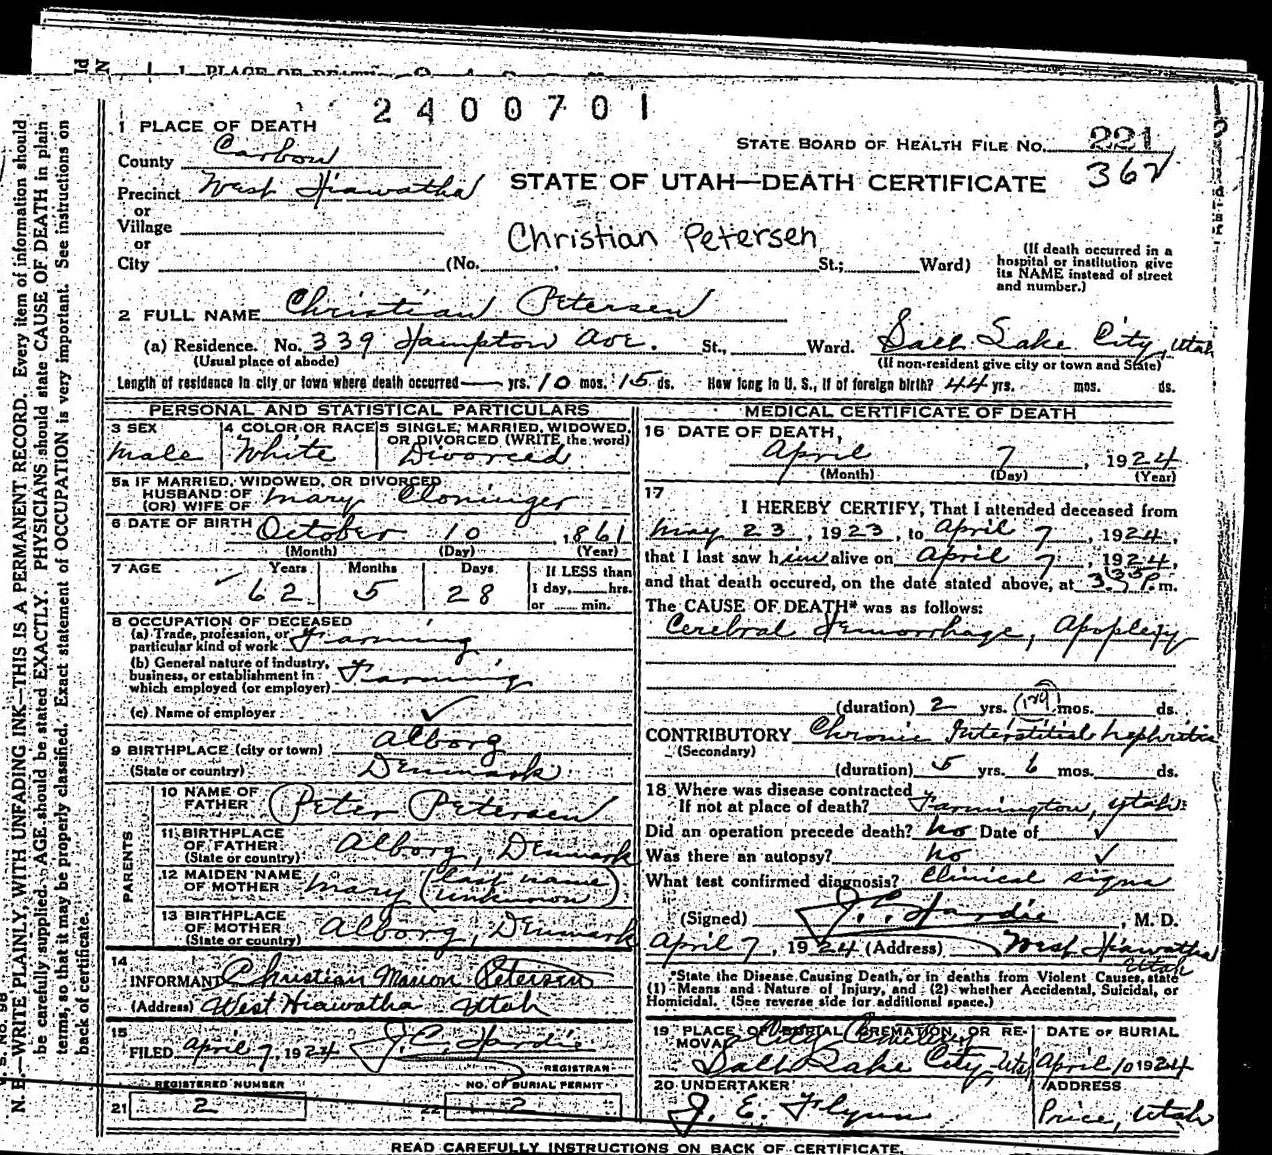 1 PLACE OF DEATH
2400701
STATE BOARD OF HEALTH FILE No. 221
362
County Carbon
Precinct West Hiawatha
STATE OF UTAH—DEATH CERTIFICATE
or
Village
or
Christian Petersen
City (No. St.; Ward)
(If death occurred in a
hospital or institution give
its NAME instead of street
and number.)
2 FULL NAME Christian Petersen
(a) Residence. No. 339 Hampton Ave. St., Ward. Salt Lake City, Utah
(Usual place of abode) (If non-resident give city or town and State)
Length of residence in city or town where death occurred — yrs. 10 mos. 15 ds. How long in U. S., if of foreign birth? 44 yrs. mos. ds.
PERSONAL AND STATISTICAL PARTICULARS
3 SEX
Male
4 COLOR OR RACE
White
5 SINGLE, MARRIED, WIDOWED,
OR DIVORCED (WRITE the word)
Divorced
5a IF MARRIED, WIDOWED, OR DIVORCED
HUSBAND OF
(OR) WIFE OF Mary Cloninger
6 DATE OF BIRTH October 10, 1861
(Month) (Day) (Year)
7 AGE Years Months Days If LESS than
1 day, hrs.
or min.
62 5 28
8 OCCUPATION OF DECEASED
(a) Trade, profession, or
particular kind of work Farming
(b) General nature of industry,
business, or establishment in
which employed (or employer) Farming
(c) Name of employer
9 BIRTHPLACE (city or town) Alborg
(State or country) Denmark
PARENTS
10 NAME OF
FATHER Peter Petersen
11 BIRTHPLACE
OF FATHER
(State or country) Alborg, Denmark
12 MAIDEN NAME
OF MOTHER Mary (last name
unknown)
13 BIRTHPLACE
OF MOTHER
(State or country) Alborg, Denmark
14
INFORMANT Christian Marion Petersen
(Address) West Hiawatha Utah
15
FILED April 7, 1924 J. C. Hardie
REGISTRAR
REGISTERED NUMBER NO. OF BURIAL PERMIT
21 2 22 2
MEDICAL CERTIFICATE OF DEATH
16 DATE OF DEATH,
April 7, 1924
(Month) (Day) (Year)
17
I HEREBY CERTIFY, That I attended deceased from
May 23, 1923, to April 7, 1924,
that I last saw him alive on April 7, 1924,
and that death occured, on the date stated above, at 3 P. m.
The CAUSE OF DEATH* was as follows:
Cerebral Hemorrhage, Apoplexy
(duration) 2 yrs. mos. ds.
CONTRIBUTORY Chronic Interstitial Nephritis
(Secondary)
(duration) 5 yrs. 6 mos. ds.
18 Where was disease contracted
If not at place of death? Farmington, Utah
Did an operation precede death? No Date of
Was there an autopsy? No
What test confirmed diagnosis? Clinical signs
(Signed) J. C. Hardie, M. D.
April 7, 1924 (Address) West Hiawatha
Utah
*State the Disease Causing Death, or in deaths from Violent Causes, state
(1) Means and Nature of Injury, and (2) whether Accidental, Suicidal, or
Homicidal. (See reverse side for additional space.)
19 PLACE OF BURIAL, CREMATION, OR RE-
MOVAL City Cemetery
Salt Lake City, Utah
DATE OF BURIAL
April 10 1924
20 UNDERTAKER
J. E. Flynn
ADDRESS
Price, Utah
READ CAREFULLY INSTRUCTIONS ON BACK OF CERTIFICATE.
N. B.—WRITE PLAINLY, WITH UNFADING INK—THIS IS A PERMANENT RECORD. Every item of information should
be carefully supplied. AGE should be stated EXACTLY. PHYSICIANS should state CAUSE OF DEATH in plain
terms, so that it may be properly classified. Exact statement of OCCUPATION is very important. See instructions on
back of certificate.